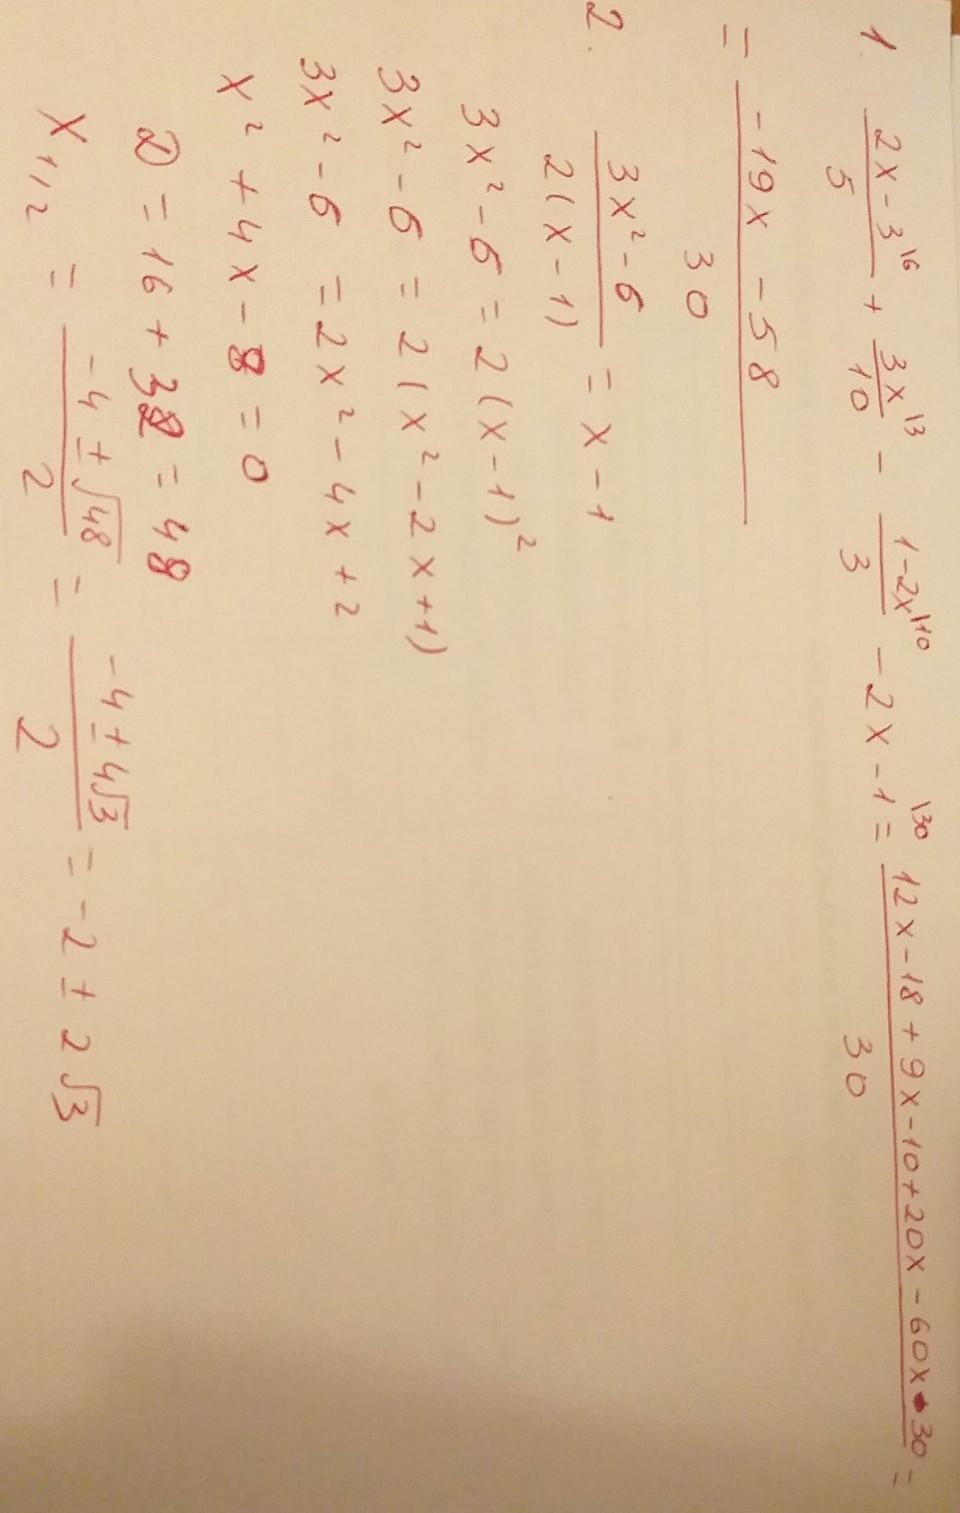 1. \frac{2x-3^{\backslash 6}}{5} + \frac{3x^{\backslash 3}}{10} - \frac{1-2x^{\backslash 10}}{3} - 2x - 1^{\backslash 30} = \frac{12x-18+9x-10+20x-60x-30}{30} =
= \frac{-19x-58}{30}
2. \frac{3x^2-6}{2(x-1)} = x-1
3x^2-6 = 2(x-1)^2
3x^2-6 = 2(x^2-2x+1)
3x^2-6 = 2x^2-4x+2
x^2+4x-8=0
D = 16+32 = 48
x_{1,2} = \frac{-4±\sqrt{48}}{2} = \frac{-4±4\sqrt{3}}{2} = -2±2\sqrt{3}